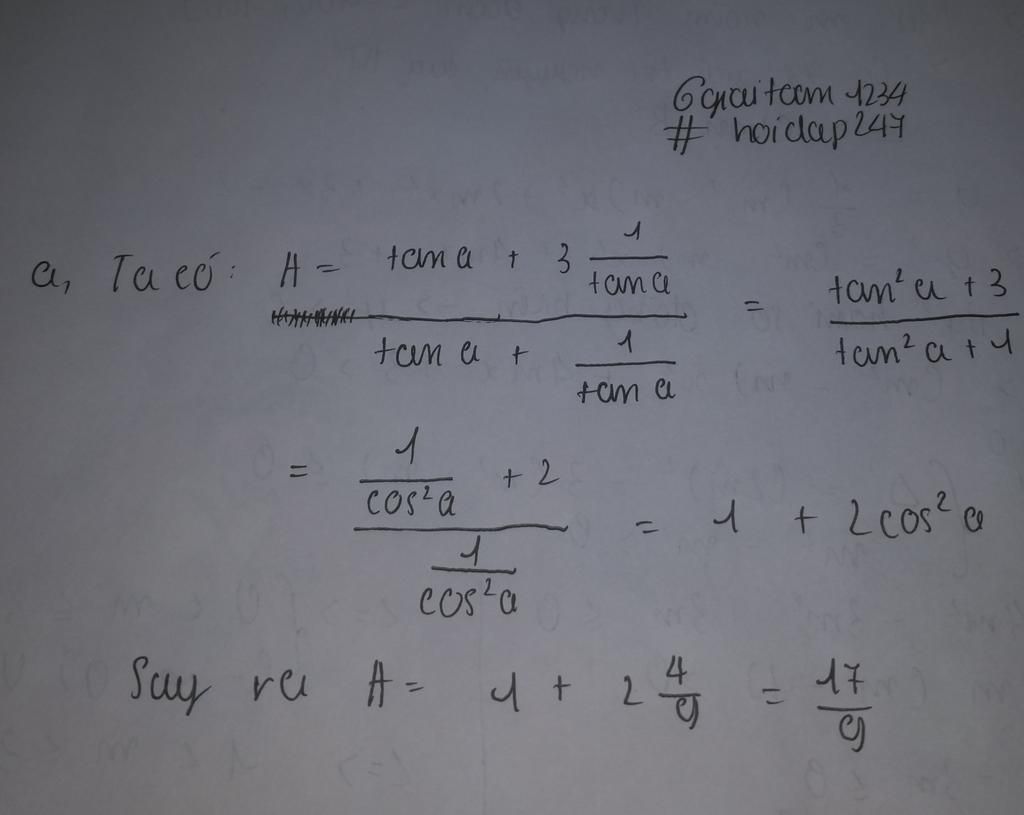 Gquaiteam 1234
# hoidap247
a, Ta có: A = (tan a + 3 1/tan a) / (tan a + 1/tan a) = (tan² a + 3) / (tan² a + 1)
= (1/cos² a + 2) / (1/cos² a) = 1 + 2cos² a
Suy ra A = 1 + 2 4/9 = 17/9